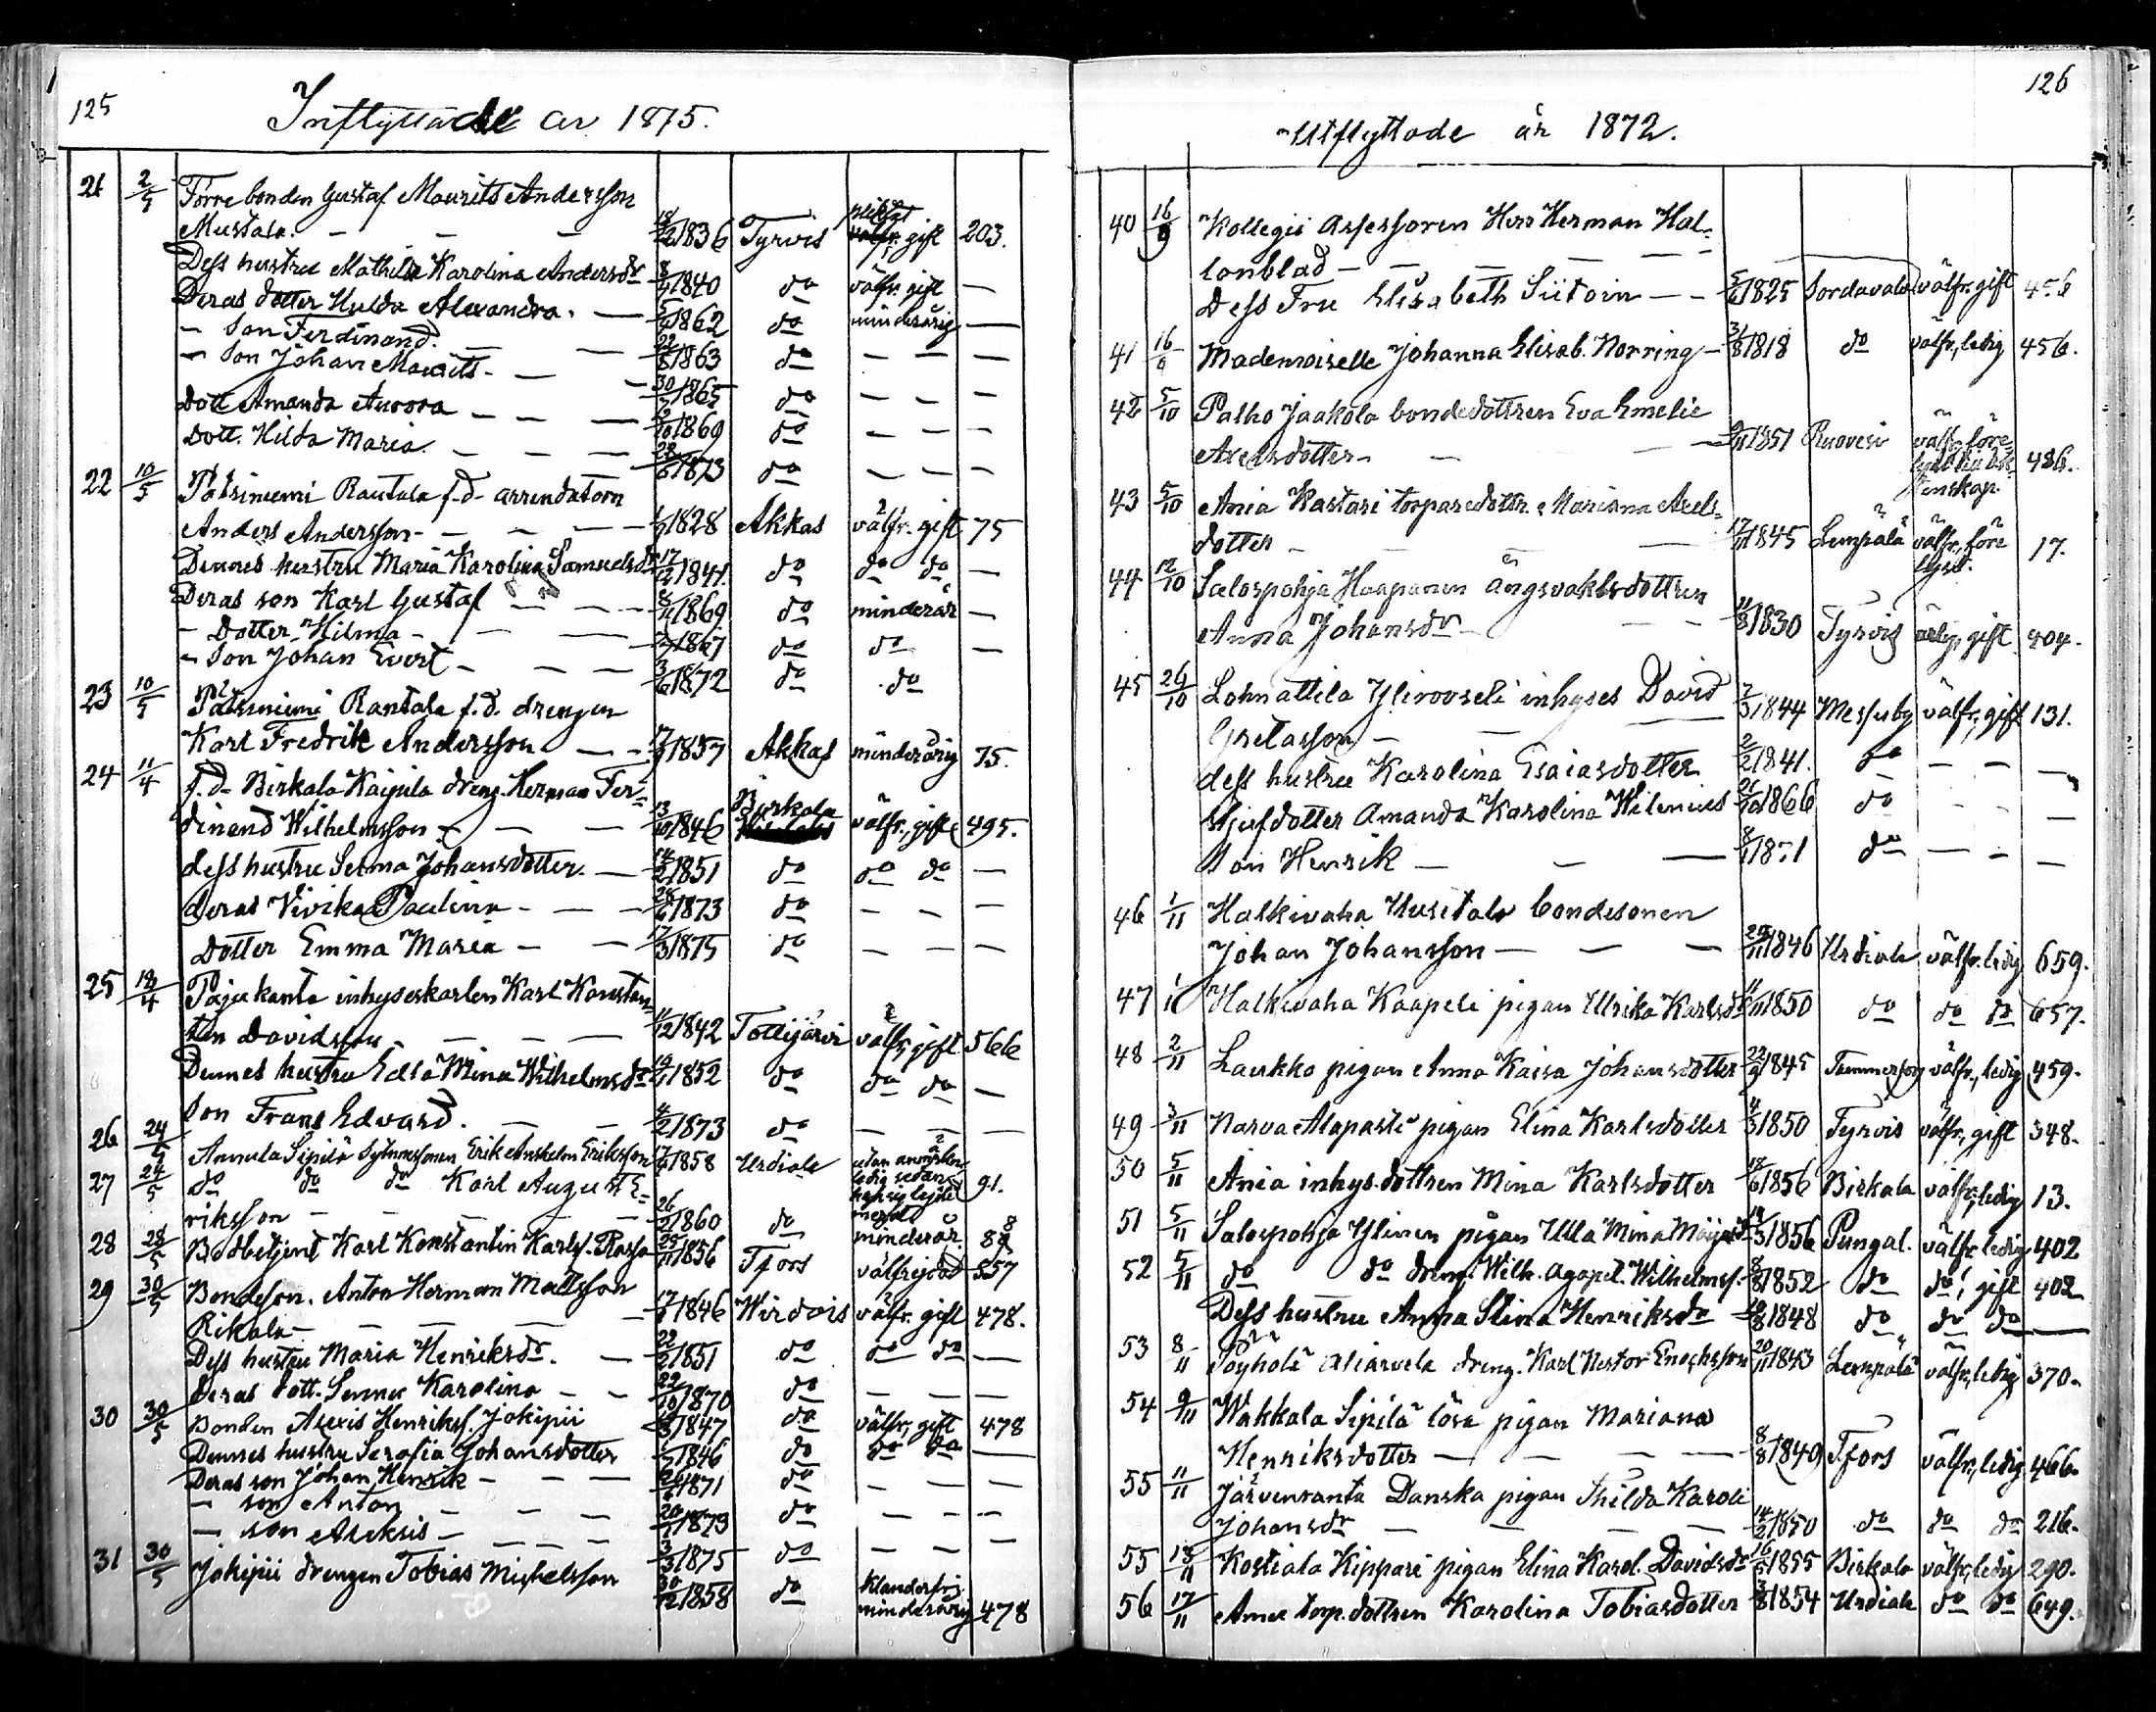 125
Inflyttade år 1875.
21 2/5 Förre bonden Gustaf Maurits Andersson
Mustala. — — — 18/2 1836 Tyrvis gift 203.
Dess hustru Mathilda Karolina Andersdr 1840 do välfr. gift —
Deras dotter Hulda Alexandra. — 1862 do minderårig —
— Son Ferdinand. — — 1863 do — — —
— Son Johan Maurits — — 30/ 1865 do — — —
Dott Amanda Aurora — — — 1869 do — — —
Dott. Hilda Maria. — — — 1873 do — — —
22 10/5 Rautala f.d. arrendatorn
Anders Andersson — — — 1828 Akkas välfr. gift 75
Dennes hustru Maria Karolina Samuelsdr 17/12 1841. do do do —
Deras son Karl Gustaf — — — 8/11 1869 do minderår —
— Dotter Hilma — — — 1867 do do —
— Son Johan Evert — — — 3/6 1872 do do
23 10/5 Rantala f.d. drengen
Karl Fredrik Andersson — — 1857 Akkas minderårig 75.
24 11/4 f.d. Birkala Kaipila dreng. Herman Fer-
dinand Wilhelmsson — — — 13/10 1846 Birkala välfr., gift 495.
dess hustru Selma Johansdotter. — 14/2 1851 do do do —
deras Vivika Paulina — — — 1873 do — — —
dotter Emma Maria — — 17/3 1875 do — — —
25 18/4 Pajukanta inhyseskarlen Karl Konstan-
tin Davidsson — — — 11/12 1842 Tottijärvi välfr, gift 566
Dennes hustru Edla Mina Wilhelmsdr 1852 do do do —
Son Frans Edvard. — — 4/2 1873 do — — —
26 24/5 Annula Sipilä Erik Anshelm Eriksson 1858 Urdiala
27 24/5 do do do Karl August E-
riksson — — — — 26/2 1860 do 91.
28 28/5 Karl Konstantin Karls. 25/11 1856 Tfors välfrejdad 557
29 30/5 Bondeson. Anton Herman Mattsson
Rikala — — — — 17/ 1846 Wirdois välfr. gift 478.
Dess hustru Maria Henriksdr. — 22/2 1851 do do do —
Deras dott. Senna Karolina — — 22/10 1870 do — — —
30 30/5 Bonden Alexis Henrikss. Jokipii 1847 do välfr, gift 478
Dennes hustru Serafia Johansdotter 1846 do do do —
Deras son Johan Henrik — — — 1871 do — — —
— son Anton — — — 20/ 1873 do — — —
— son Aleksis — — — — 3/3 1875 do — — —
31 30/5 Jokipii drengen Tobias Michelsson 30/12 1858 do klanderfri minderårig 478
126
Utflyttade år 1872.
40 16/9 Kollegii Assessoren Herr Herman Hal-
lonblad — — — — —
Dess Fru Elisabeth Siitoin — — 5/6 1825 Sordavala välfr. gift 456
41 16/9 Mademoiselle Johanna Elisab. Norring — 3/8 1818 do välfr, ledig 456.
42 5/10 Palho Jaakola bondedottren Eva Emelie
Axelsdotter — — — 1851 Ruovesi 486.
43 5/10 Ania Kastari torparedottr. Mariana Axels-
dotter — — — 17/11 1845 Lempälä välfr, före lyst. 17.
44 12/10 Salospohja Haapanen ängsvaktsdottren
Anna Johansdr — — — 11/8 1830 Tyrvis gift 404.
45 26/10 Lohnattila Ylirooseli inhyses David
Gretasson — — 7/3 1844 Messuby välfr, gift 131.
dess hustru Karolina Esaiasdotter 2/2 1841. do — — —
styfdotter Amanda Karolina Wilenius 26/10 1866 do — — —
Son Henrik — — — 8/1 1871 do — — —
46 1/11 Halkivaha Uusitalo bondesonen
Johan Johansson — — — 1846 Urdiala välfr. ledig 659.
47 1/11 Halkivaha Kaapeli pigan Ulrika Karlsdr 1850 do do do 657.
48 2/11 Laukko pigan Anna Kaisa Johansdotter 22/9 1845 Tammerfors välfr., ledig 459.
49 3/11 Narva Alapasti pigan Elina Karlsdotter 4/3 1850 Tyrvis välfr., gift 348.
50 5/11 Ania inhys.dottren Mina Karlsdotter 18/6 1856 Birkala välfr, ledig 13.
51 5/11 Salospohja Ylinen pigan Ulla Mina 1856 Pungal. välfr ledig 402
52 5/11 do do dreng. Wilh. Agapet. Wilhelmss. 8/8 1852 do do, gift 402
Dess hustru Anna Stina Henriksdr 1848 do do do —
53 8/11 Pöyhölä Aliarvela dreng. Karl Nestor Enochsson 20/11 1843 Lempälä välfr, ledig 370.
54 9/11 Wakkala Sipilä lösa pigan Mariana
Henriksdotter — — — 8/8 1849 Tfors välfr, ledig 466.
55 11/11 Järvenranta Danska pigan Thilda Karoli
Johansdr — — — 14/2 1850 do do do 216.
55 13/11 Kostiala Kippari pigan Elina Karol. Davidsdr 16/5 1855 Birkala välfr, ledig 290.
56 17/11 torp.dottren Karolina Tobiasdotter 3/8 1854 Urdiala do do 649.